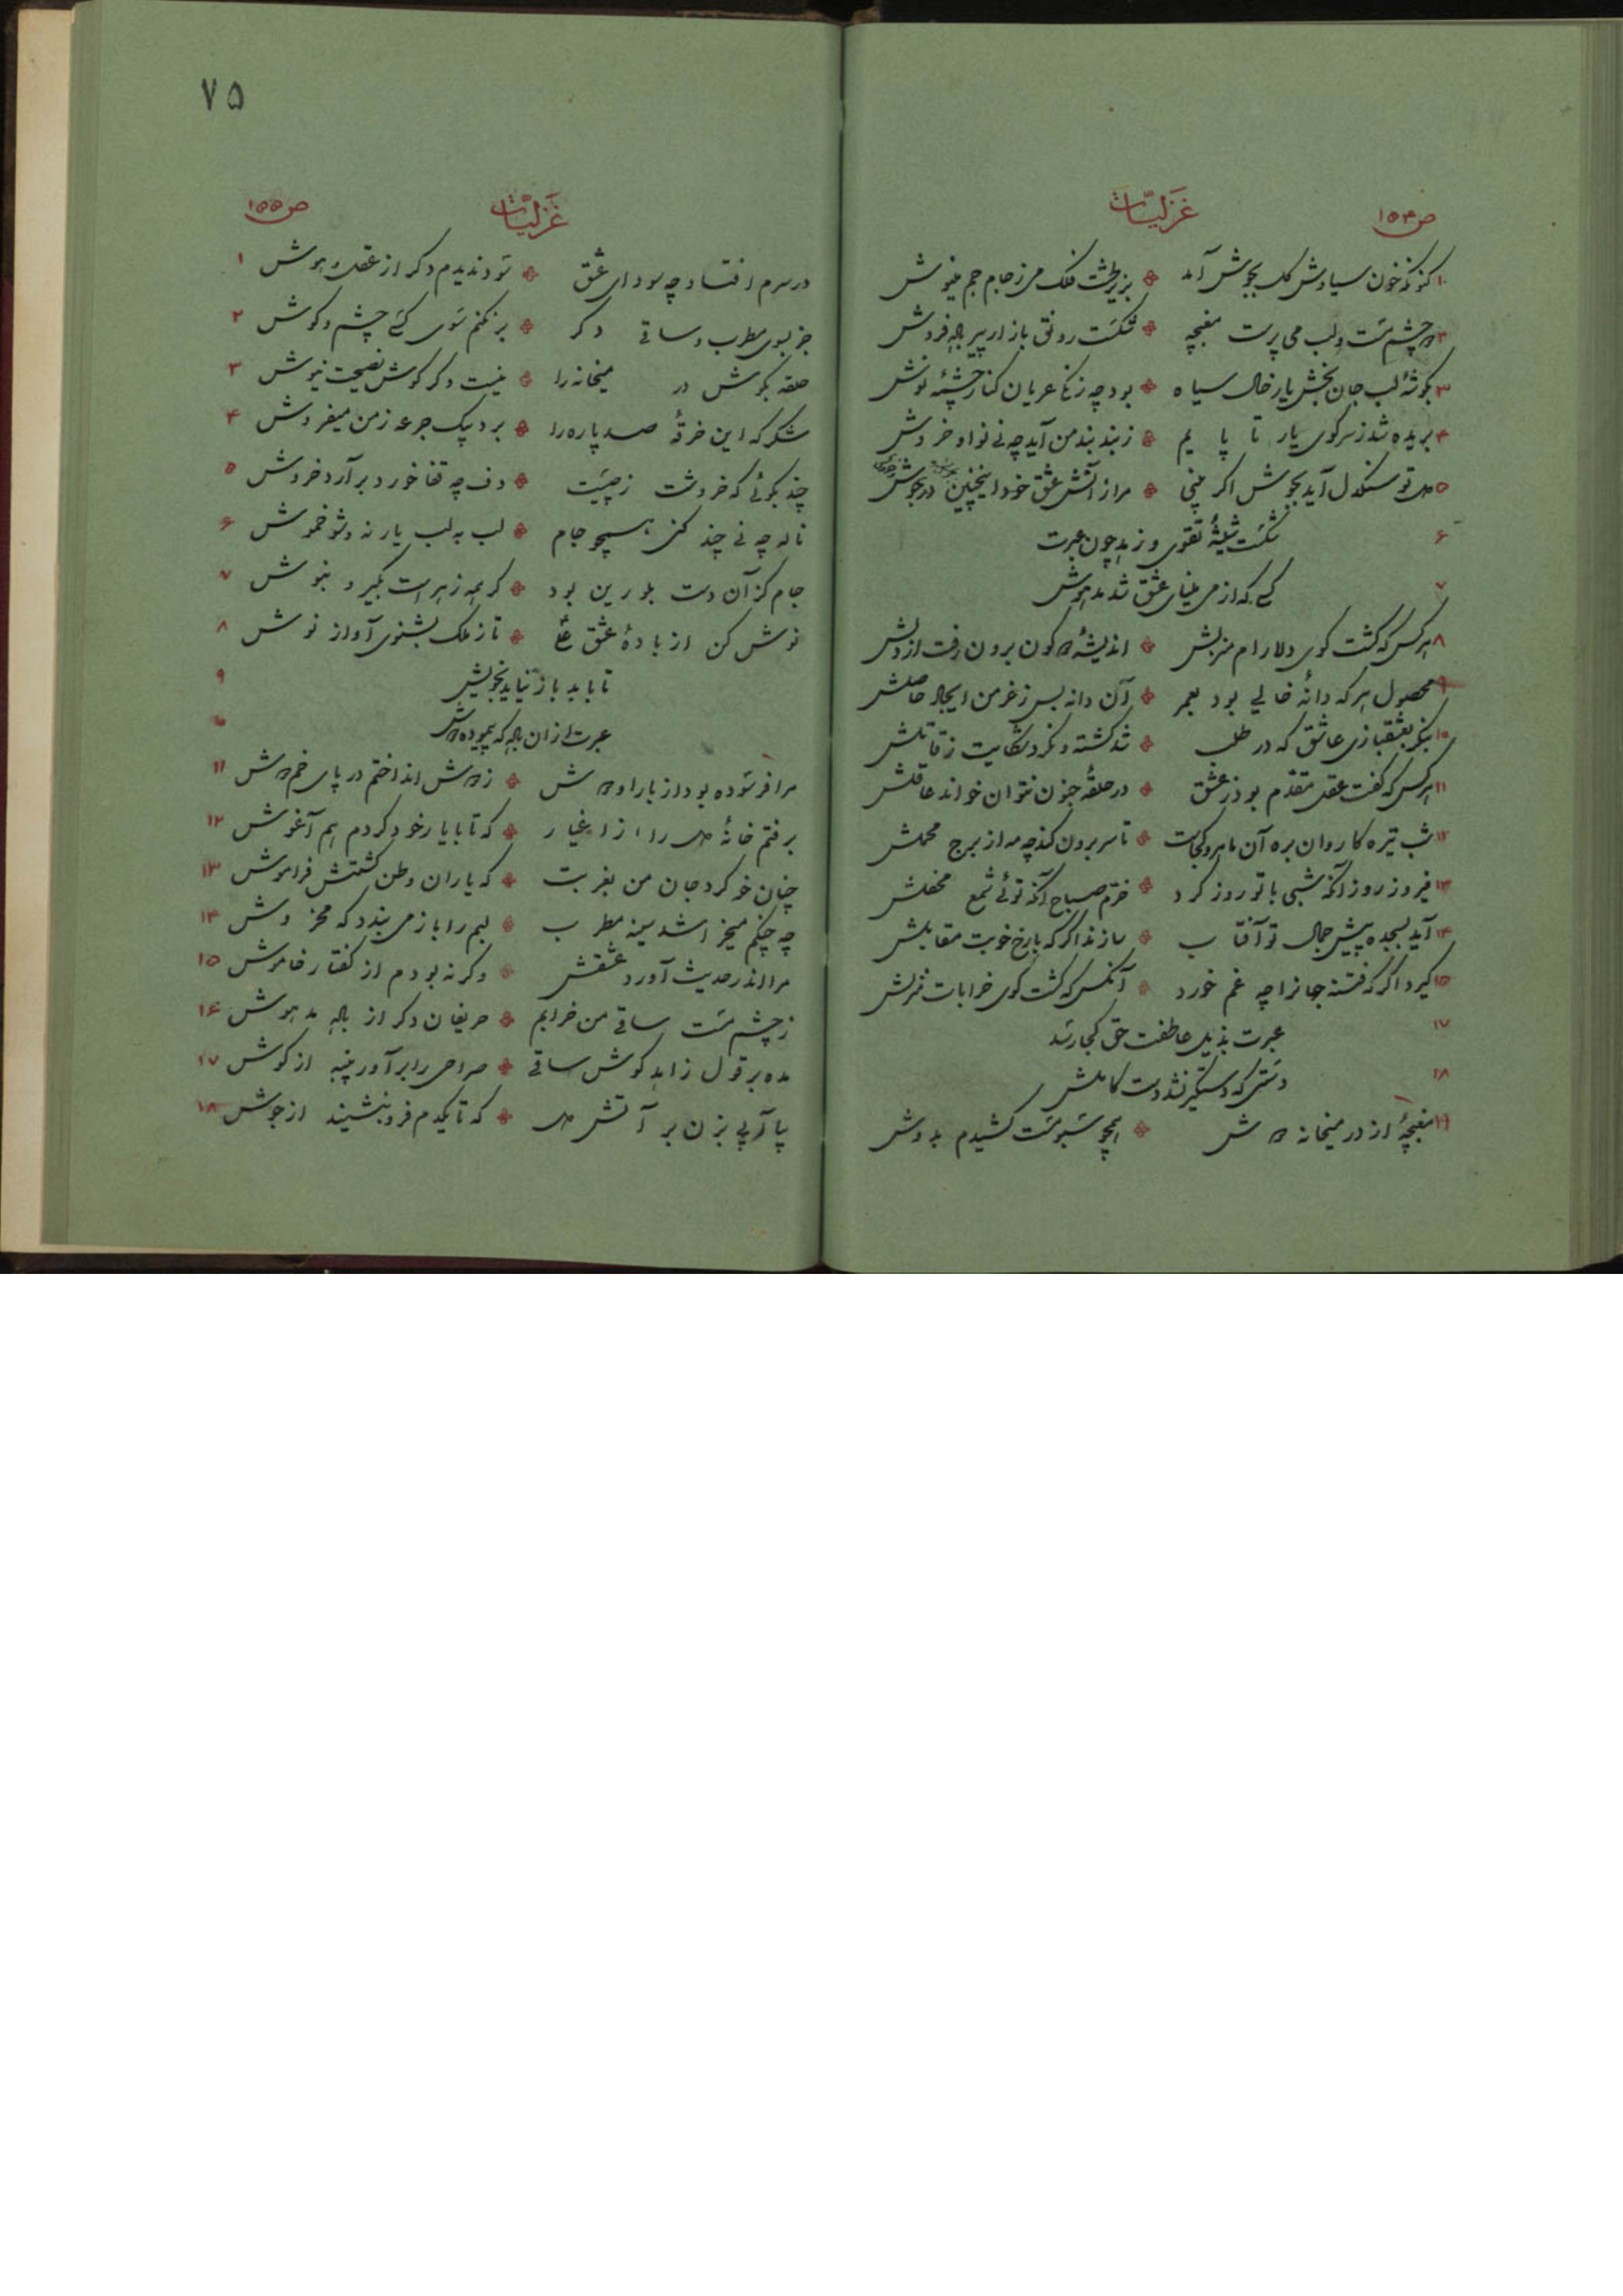 ص ۱۵۴ غزلیّات
۱ کنونکه خون سیاوش گل بجوش آمد بزیر طشت فلک می ز جام جم مینوش
۲ دو چشم مست و لب می پرست مغبچه شکست رونق بازار پیر باده فروش
۳ بگوشهٔ لب جان بخش یار خال سیاه بود چه زنگی عریان کنار چشمهٔ نوش
۴ بریده شد ز سر کوی یار تا پایم ز بند بند من آید چه نی نوا و خروش
۵ دل تو سنگدل آید بجوش اگر بینی مرا ز آتش عشق خود اینچنین در جوش
۶ شکست شیشهٔ تقوی و زهد چون عبرت
۷ کسی که از می مینای عشق شد مدهوش
۸ هر کس که گشت کوی دلارام منزلش اندیشهٔ دو کون برون رفت از دلش
۹ محصول هر که دانهٔ خالی بود بعمر آن دانه بس ز خرمن ایجاد حاصلش
۱۰ بنگر بعشقبازی عاشق که در طلب شد کشته و نکرد شکایت ز قاتلش
۱۱ هر کس که گفت عقل مقدّم بود ز عشق در حلقهٔ جنون نتوان خواند عاقلش
۱۲ شب تیره کاروان بره آن ماهرو کجاست تا سر برون کند چه مه از برج محملش
۱۳ فیروز روز آنکه شبی با تو روز کرد خرّم صباح آنکه توئی شمع محفلش
۱۴ آید بسجده پیش جمال تو آفتاب سازند اگر که با رخ خوبت مقابلش
۱۵ گیرد اگر که فتنه جهانرا چه غم خورد آنکس که گشت کوی خرابات منزلش
۱۷ عبرت بذیل عاطفت حق کجا رسد
۱۸ دستی که دستگیر نشد دست کاملش
۱۹ مغبچهٔ از در میخانه دوش همچو سبو مست کشیدم بدوش
۷۵
غزلیّات ص ۱۵۵
در سرم افتاد چه سودای عشق سود ندیدم دگر از عقل و هوش ۱
جز بسوی مطرب و ساقی دگر برنکنم سوی کسی چشم و گوش ۲
حلقه بگوش در میخانه را نیست دگر گوش نصیحت نیوش ۳
شکر که این خرقهٔ صد پاره را برد بیک جرعه ز من میفروش ۴
چند بگوئی که خروشت ز چیست دف چه قفا خورد برآرد خروش ۵
ناله چه نی چند کنی همچو جام لب به لب یار نه و شو خموش ۶
جام کز آن دست بلورین بود گر همه زهر است بگیر و بنوش ۷
نوش کن از بادهٔ عشق علی تا ز ملک بشنوی آواز نوش ۸
تا بابد باز نیاید بخویش ۹
عبرت از آن باده که پیمود دوش ۱۰
مرا فرسوده بود از بار او دوش ز دوش انداختم در پای خم دوش ۱۱
برفتم خانهٔ دل را از اغیار که تا با یار خود کردم هم آغوش ۱۲
چنان خو کرد جان من بغربت که یاران وطن گشتش فراموش ۱۳
چه چنگم میخراشد سینه مطرب لبم را باز می بندد که مخروش ۱۴
مرا اندر حدیث آورد عشقش وگرنه بودم از گفتار خاموش ۱۵
ز چشم مست ساقی من خرابم حریفان دگر از باده مدهوش ۱۶
مده بر قول زاهد گوش ساقی صراحی را برآور پنبه از گوش ۱۷
بیا آبی بزن بر آتش دل که تا یکدم فرو بنشیند از جوش ۱۸